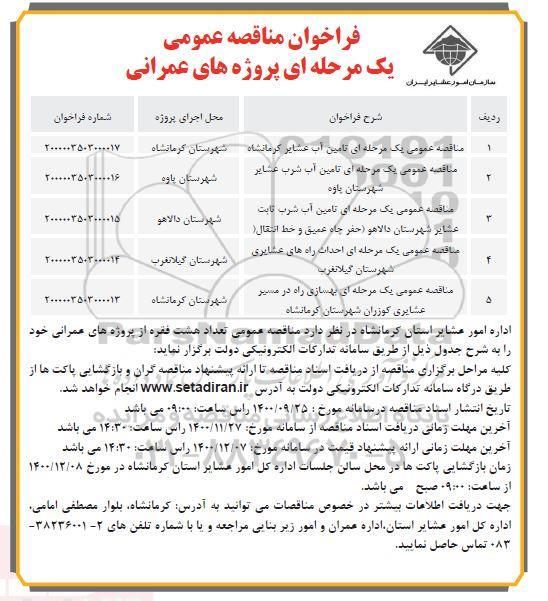 فراخوان مناقصه عمومی
یک مرحله ای پروژه های عمرانی
سازمان امور عشایر ایران
ردیف شرح فراخوان محل اجرای پروژه شماره فراخوان
۱ مناقصه عمومی یک مرحله ای تامین آب عشایر کرمانشاه شهرستان کرمانشاه ۲۰۰۰۰۰۳۵۰۳۰۰۰۰۱۷
۲ مناقصه عمومی یک مرحله ای تامین آب شرب عشایر
شهرستان پاوه شهرستان پاوه ۲۰۰۰۰۰۳۵۰۳۰۰۰۰۱۶
۳ مناقصه عمومی یک مرحله ای تامین آب شرب ثابت
عشایر شهرستان دالاهو (حفر چاه عمیق و خط انتقال( شهرستان دالاهو ۲۰۰۰۰۰۳۵۰۳۰۰۰۰۱۵
۴ مناقصه عمومی یک مرحله ای احداث راه های عشایری
شهرستان گیلانغرب شهرستان گیلانغرب ۲۰۰۰۰۰۳۵۰۳۰۰۰۰۱۴
۵ مناقصه عمومی یک مرحله ای بهسازی راه در مسیر
عشایری کوزران شهرستان کرمانشاه شهرستان کرمانشاه ۲۰۰۰۰۰۳۵۰۳۰۰۰۰۱۳
اداره امور عشایر استان کرمانشاه در نظر دارد مناقصه عمومی تعداد هشت فقره از پروژه های عمرانی خود
را به شرح جدول ذیل از طریق سامانه تدارکات الکترونیکی دولت برگزار نماید:
کلیه مراحل برگزاری مناقصه از دریافت اسناد مناقصه تا ارائه پیشنهاد مناقصه گران و بازگشایی پاکت ها از
طریق درگاه سامانه تدارکات الکترونیکی دولت به آدرس www.setadiran.ir انجام خواهد شد.
تاریخ انتشار اسناد مناقصه درسامانه مورخ : ۱۴۰۰/۰۹/۲۵ راس ساعت: ۰۹:۰۰ می باشد
آخرین مهلت زمانی دریافت اسناد مناقصه از سامانه مورخ: ۱۴۰۰/۱۱/۲۷ راس ساعت: ۱۴:۳۰ می باشد
آخرین مهلت زمانی ارائه پیشنهاد قیمت در سامانه مورخ: ۱۴۰۰/۱۲/۰۷ راس ساعت: ۱۴:۳۰ می باشد
زمان بازگشایی پاکت ها در محل سالن جلسات اداره کل امور عشایر استان کرمانشاه در مورخ ۱۴۰۰/۱۲/۰۸
از ساعت: ۰۹:۰۰ صبح می باشد.
جهت دریافت اطلاعات بیشتر در خصوص مناقصات می توانید به آدرس: کرمانشاه، بلوار مصطفی امامی،
اداره کل امور عشایر استان،اداره عمران و امور زیر بنایی مراجعه و یا با شماره تلفن های ۲-۳۸۲۳۶۰۰۱-
۰۸۳ تماس حاصل نمایید.
ParsNamadData
۰۲۱-۸۸۳۴۹۶۷۰-۵